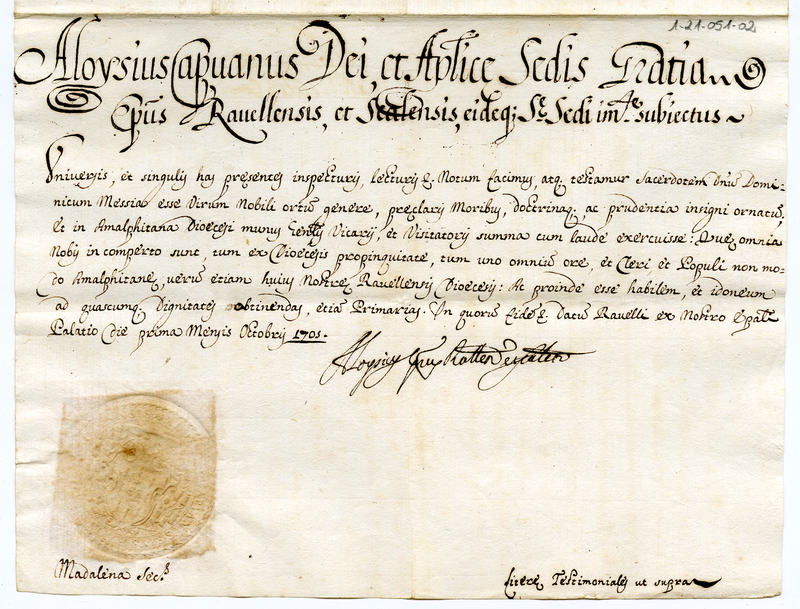 1-21-051-02
Aloysius Capuanus Dei, et Aplice Sedis Gratia
Epũs Ravellensis, et Scalensis, eideq; Sẽ Sedi imẽ. subiectus ~
Universis, et singulis has presentes inspecturis, lecturis &. Notum facimus, atq. testamur Sacerdotem Dnũs Domi=
nicum Messia esse Virum Nobili ortũ genere, preclaris Moribus, doctrinaq; ac prudentia insigni ornatũ,
et in Amalphitana Dioecesi munus Genlis Vicarij, et Visitatoris summa cum laude exercuisse: Que omnia
Nobis in comperto sunt, tum ex Dioecesis propinquitate, tum uno omniũ ore, et Cleri, et Populi non mo=
do Amalphitane, verũ etiam huius Nostre Ravellensis Dioecesis: At proinde esse habilem, et idoneum
ad quascumq. Dignitates obtinendas, etiã Primarias. In quorũ fidẽ &. datũs Ravelli ex Nostro Epali
Palatio die prima Mensis Octobris 1705.
Aloysius
Madalena Sec.s
Litere Testimoniales ut supra